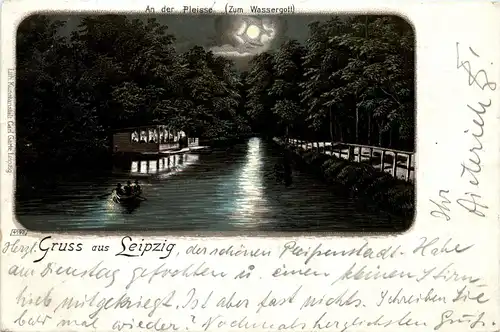 An der Pleisse. (Zum Wassergott)
Lith. Kunstanstalt Carl Garte, Leipzig.
Herzl. Gruss aus Leipzig, der schönen Pleißenstadt. Habe
am Dienstag gefochten u. einen kleinen Stirn-
hieb mitgekriegt. Ist aber fast nichts. Schreiben Sie
bald mal wieder? Nochmals herzlichsten Gruß
Ihr Dietrich